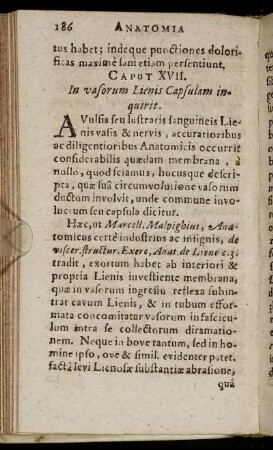 186 ANATOMIA
tus habet; indeque punctiones dolori-
ficas maximè sani etiam persentiunt.
CAPUT XVII.
In vasorum Lienis Capsulam in-
quirit.
AVulsis seu lustraris sanguineis Lie-
nis vasis & nervis, accuratioribus
ac diligentioribus Anatomicis occurrit
considerabilis quædam membrana, à
nullo, quod sciamus, hucusque descri-
pta, quæ suâ circumvolutione vasorum
ductum involvit, unde commune invo-
lucrum seu capsula dicitur.
Hæc, ut Marcell. Malpighius, Ana-
tomicus certè industrius ac insignis, de
viscer. structur. Exerc. Anat. de Liene c. 3.
tradit, exortum habet ab interiori &
propria Lienis investiente membrana,
quæ in vasorum ingressu reflexa subin-
trat cavum Lienis, & in tubum effor-
mata concomitatur vasorum in fascicu-
lum intra se collectorum diramatio-
nem. Neque in bove tantum, sed in ho-
mine ipso, ove & simil. evidenter patet.
factâ levi Lienosæ substantiæ abrasione,
quâ